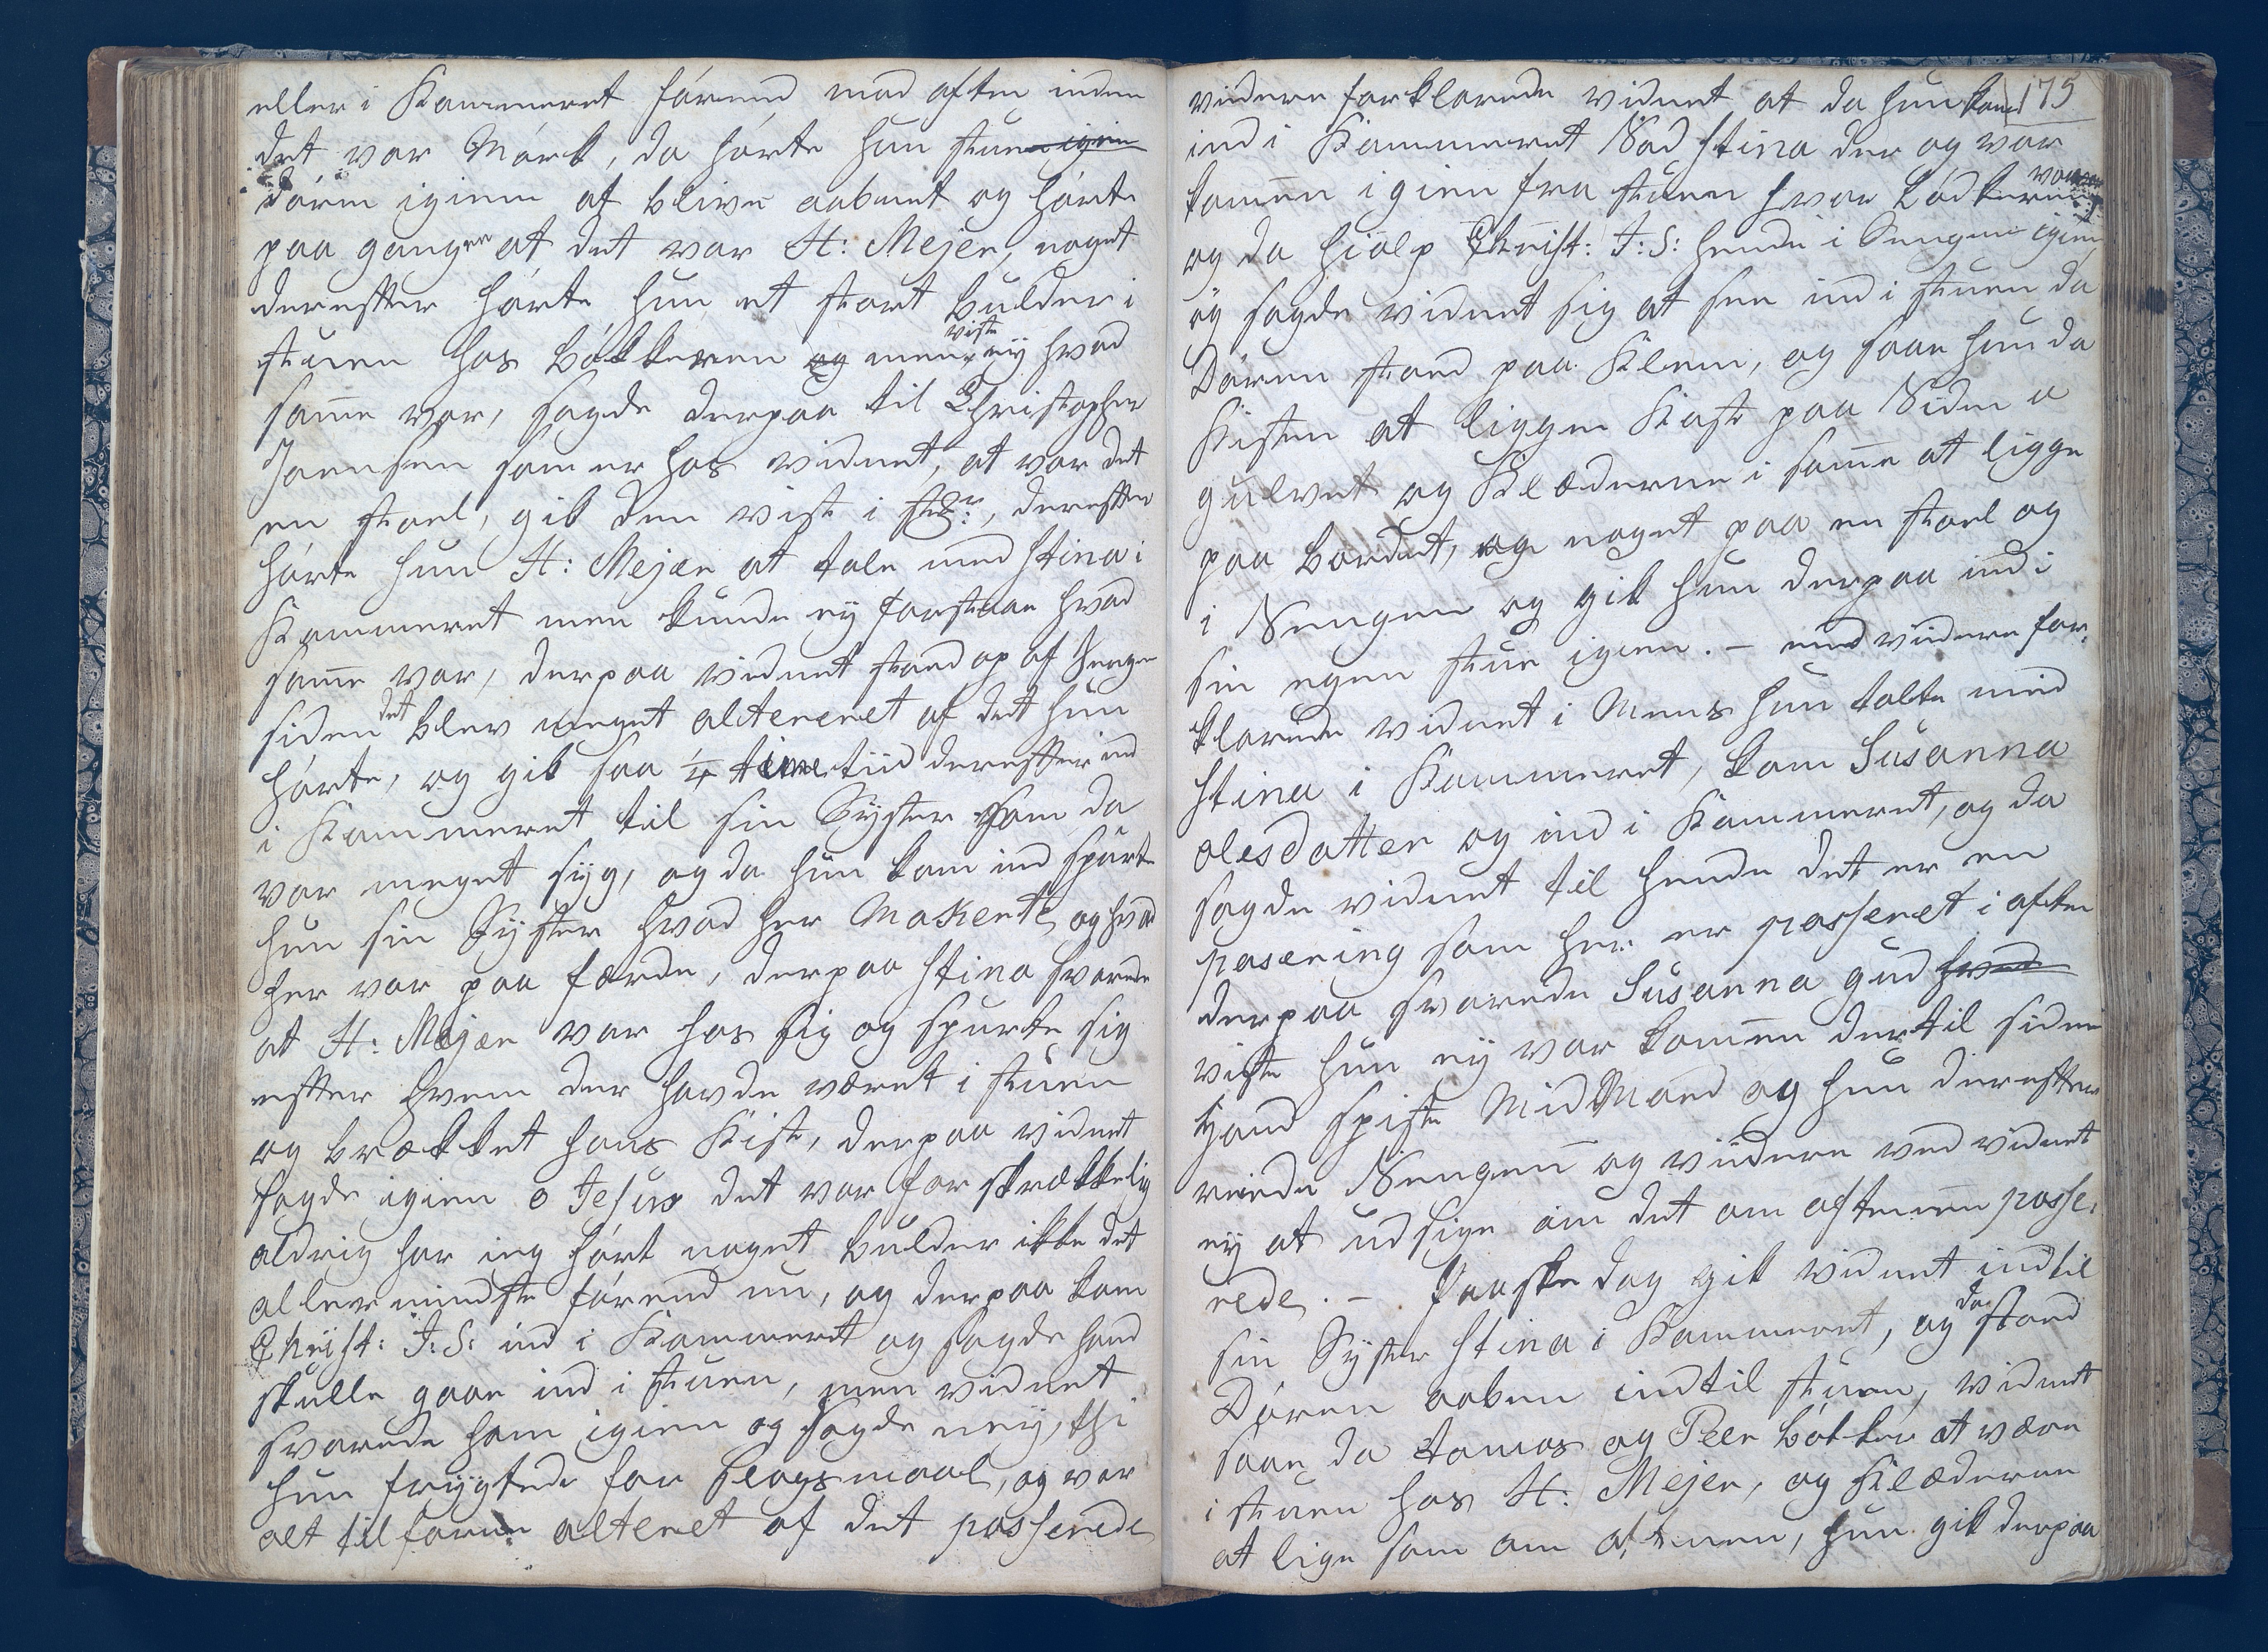 eller i Kammeret förend mod aften inden
det var Mörk, da hörte hun stuen igien
dören igien at blive aabnet og hörte
paa gangen at det var H: Mejer, noget
derefter hörte hun et stort bulder i
stuen hos bökkeren og men viste eÿ hvad
samme var, sagde derpaa til Christopher
Joensen som er hos vidnet, at var det
en stoel, gik den vist i st:, derefter
hörte hun H: Mejær at tale med Stina i
Kammeret men kunde eÿ forstaae hvad
samme var, derpaa vidnet stoed op af Senge
siden det blev meget altereret af det hun
hörte, og gik saa 1/4 time tiid derefter ind
i Kammeret til sin Sÿster som da
var meget sÿg, og da hun kom ind spurte
hun sin Sÿster hvad her Makerte og hvad
her var paa færde, derpaa Stina svarede
at H: Mejær var hos sig og spurte sig
efter hvem der havde været i stuen
og brækket hans Kiste, derpaa vidnet
sagde igien o Jesus det var for skrækkelig
aldrig har ieg hört noget bulder ikke det
allermindste förend nu, og derpaa kom
Christ: J: S: ind i Kammeret og sagde hand
skulle gaae ind i stuen, men vidnet
svarede ham igien og sagde neÿ, thi
hun frÿgtede for slagsmaal, og var
alt tilforne alteret af det passerede
175
videre forklarede vidnet at da hun kom
ind i Kammeret Sad Stina der og var
kommen igien fra stuen hvor bödkeren var
og da hialp Christ: J: S: hende i Sengen igien
og sagde vidnet sig at see ind i stuen da
Dören stoed paa Klem, og saae hun da
Kisten at ligge Kast paa Siden a
gulvet og Klæderne i samme at ligge
paa bordet, og noget paa en stoel og
i Sengen og gik hun derpaa ind i
sin egen stue igien. – end videre for,
klarede vidnet i Mens hun talte med
Stina i Kammeret, kom Susanna
olesdatter og ind i Kammeret, og da
sagde vidnet til hende det er en
pasering som her er passeret i aften
derpaa svarede Susanna gud hvad
viste hun eÿ var kommen dertil siden
hand spiste MidMaed og hun derefter
reede Sengen og videre ved vidnet
eÿ at udsige om det om aftenen passe,
rede. – Paaske dag gik vidnet ind til
sin Sÿster Stina i Kammeret, og da stoed
Dören aaben ind til stuen, vidnet
saae da Tomas og Peer böcker at være
i stuen hos H: Mejer, og Klæderne
at lige som om aftenen, hun gik derpaa